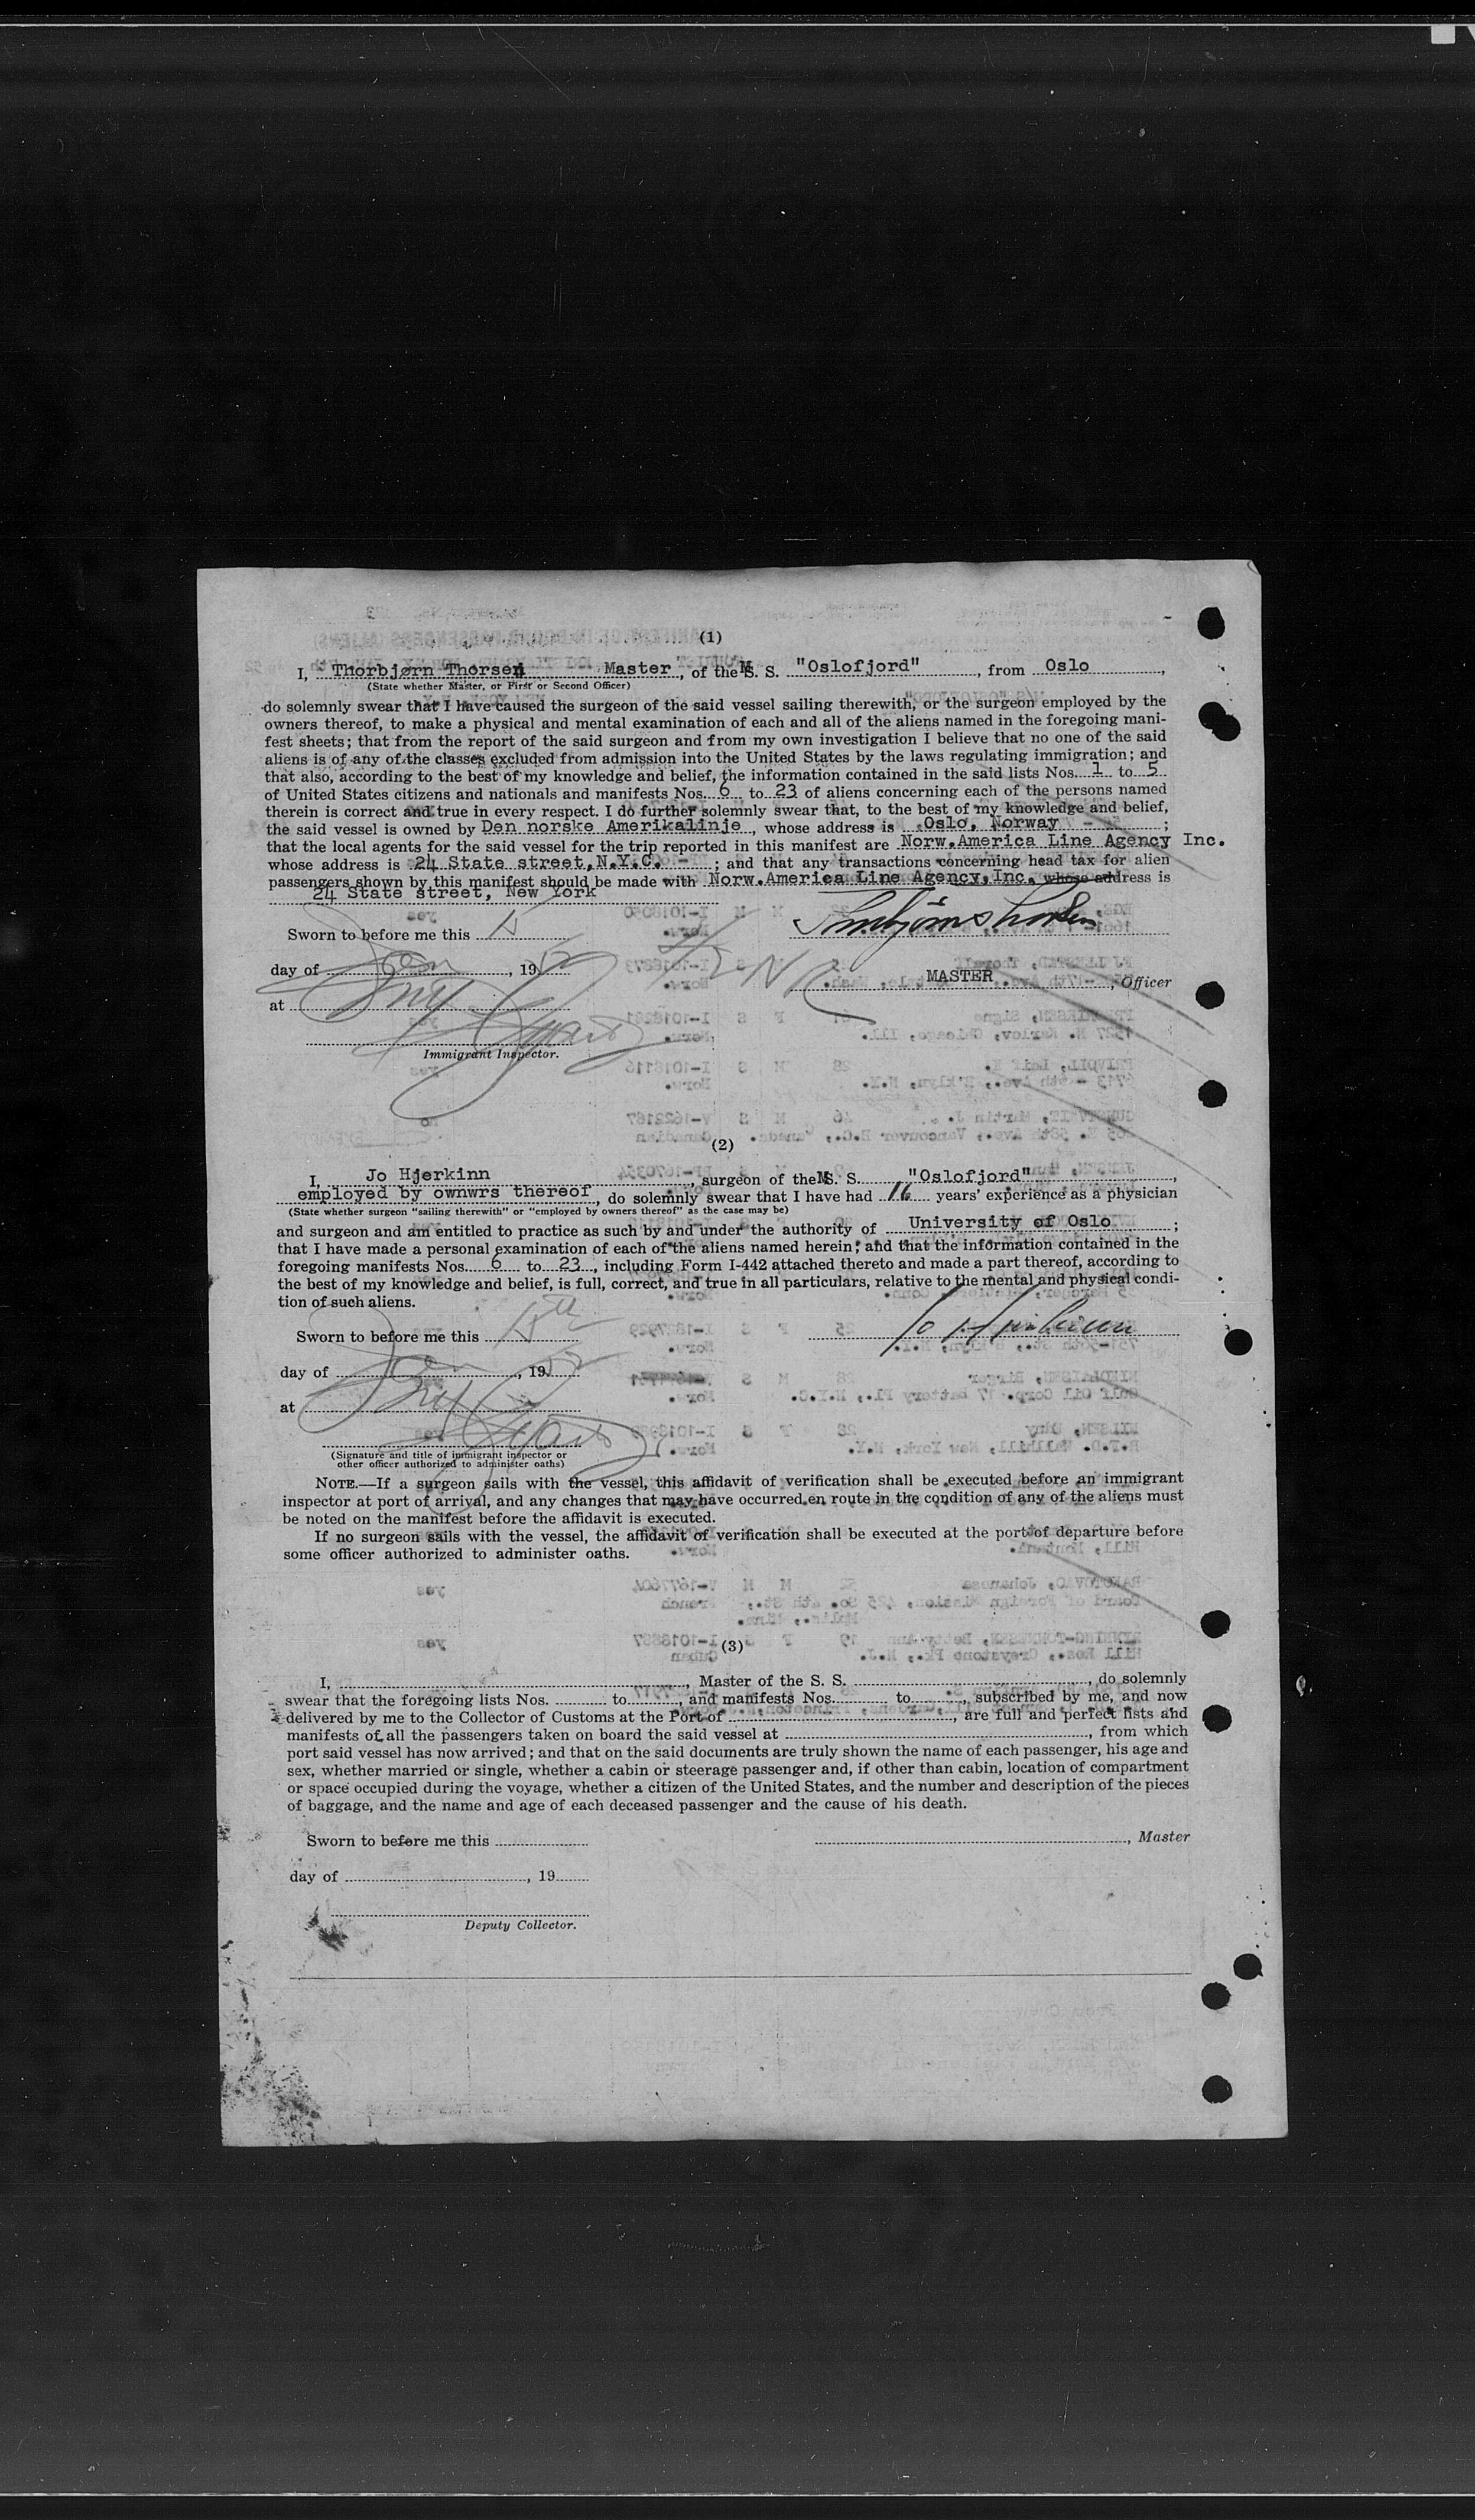 (1)
I, Thorbjørn Thorsen Master, of the M. S. "Oslofjord", from Oslo,
(State whether Master, or First or Second Officer)
do solemnly swear that I have caused the surgeon of the said vessel sailing therewith, or the surgeon employed by the
owners thereof, to make a physical and mental examination of each and all of the aliens named in the foregoing mani-
fest sheets; that from the report of the said surgeon and from my own investigation I believe that no one of the said
aliens is of any of the classes excluded from admission into the United States by the laws regulating immigration; and
that also, according to the best of my knowledge and belief, the information contained in the said lists Nos. 1 to 5
of United States citizens and nationals and manifests Nos. 6 to 23 of aliens concerning each of the persons named
therein is correct and true in every respect. I do further solemnly swear that, to the best of my knowledge and belief,
the said vessel is owned by Den norske Amerikalinje, whose address is Oslo, Norway;
that the local agents for the said vessel for the trip reported in this manifest are Norw.America Line Agency Inc.
whose address is 24 State street, N.Y.C. -; and that any transactions concerning head tax for alien
passengers shown by this manifest should be made with Norw.America Line Agency, Inc. whose address is
24 State street, New York
Sworn to before me this 15
day of Jan, 1952
MASTER, Officer
at
Immigrant Inspector.
(2)
I, Jo Hjerkinn, surgeon of the M. S. "Oslofjord",
employed by ownwrs thereof, do solemnly swear that I have had 16 years' experience as a physician
(State whether surgeon "sailing therewith" or "employed by owners thereof" as the case may be)
and surgeon and am entitled to practice as such by and under the authority of University of Oslo;
that I have made a personal examination of each of the aliens named herein; and that the information contained in the
foregoing manifests Nos. 6 to 23, including Form I-442 attached thereto and made a part thereof, according to
the best of my knowledge and belief, is full, correct, and true in all particulars, relative to the mental and physical condi-
tion of such aliens.
Sworn to before me this 15th
Jo Hjerkinn
day of Jan, 1952
at
(Signature and title of immigrant inspector or
other officer authorized to administer oaths)
NOTE.—If a surgeon sails with the vessel, this affidavit of verification shall be executed before an immigrant
inspector at port of arrival, and any changes that may have occurred en route in the condition of any of the aliens must
be noted on the manifest before the affidavit is executed.
If no surgeon sails with the vessel, the affidavit of verification shall be executed at the port of departure before
some officer authorized to administer oaths.
(3)
I, , Master of the S. S. , do solemnly
swear that the foregoing lists Nos. to , and manifests Nos. to , subscribed by me, and now
delivered by me to the Collector of Customs at the Port of , are full and perfect lists and
manifests of all the passengers taken on board the said vessel at , from which
port said vessel has now arrived; and that on the said documents are truly shown the name of each passenger, his age and
sex, whether married or single, whether a cabin or steerage passenger and, if other than cabin, location of compartment
or space occupied during the voyage, whether a citizen of the United States, and the number and description of the pieces
of baggage, and the name and age of each deceased passenger and the cause of his death.
Sworn to before me this
, Master
day of , 19
Deputy Collector.